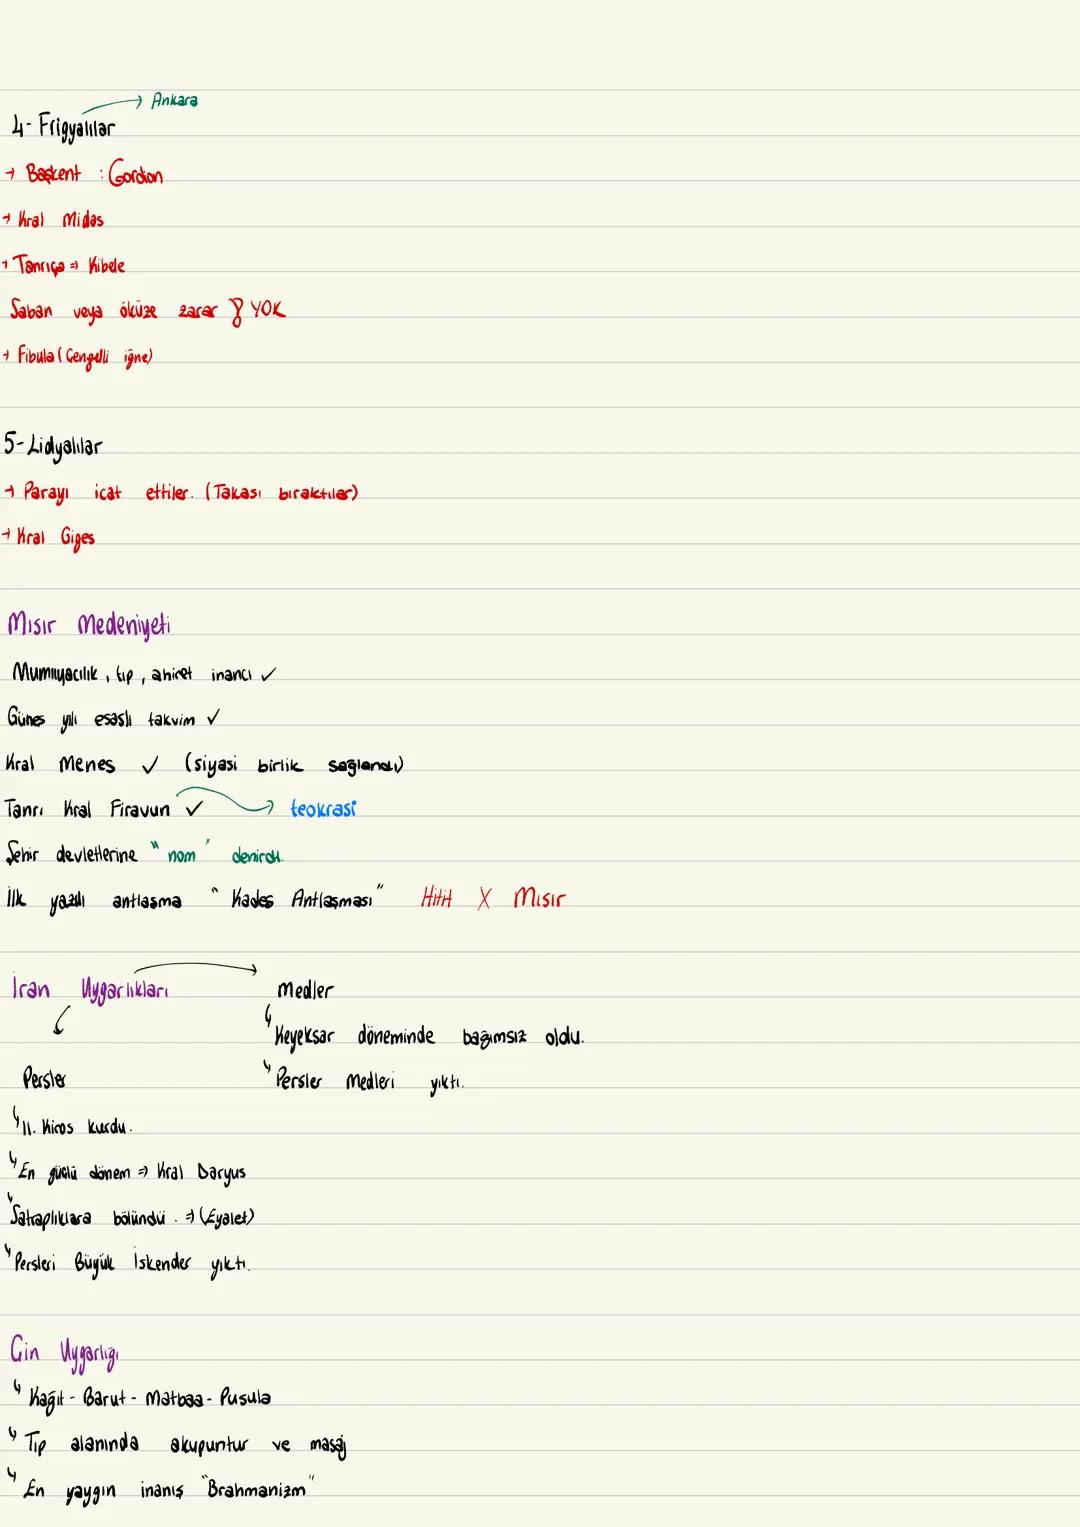 → Ankara
4- Frigyalılar
→ Başkent : Gordion
→ Kral Midas
→ Tanrıça => Kibele
Saban veya öküze zarar YOK
→ Fibula (Çengelli iğne)
5- Lidyalılar
→ Parayı icat ettiler. (Takası bıraktılar)
→ Kral Giges
Mısır Medeniyeti
Mumyacılık, tıp, ahiret inancı ✓
Güneş yılı esaslı takvim ✓
Kral Menes ✓ (siyasi birlik sağlandı)
Tanrı Kral Firavun ✓ → teokrasi
Şehir devletlerine "nom" denirdi.
İlk yazılı antlaşma "Kadeş Antlaşması" Hitit X Mısır
İran Uygarlıkları → Medler
↳ Keyeksar döneminde bağımsız oldu.
Persler
↳ Persler Medleri yıktı.
↳ II. Kiros kurdu.
↳ En güçlü dönem => Kral Daryus
↳ Satraplıklara bölündü. => (Eyalet)
↳ Persleri Büyük İskender yıktı.
Çin Uygarlığı
↳ Kağıt - Barut - Matbaa - Pusula
↳ Tıp alanında akupuntur ve masaj
↳ En yaygın inanış "Brahmanizm"